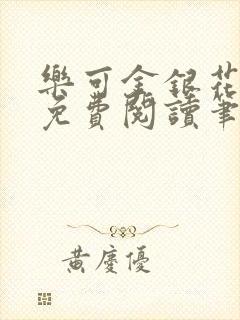 樂可金銀花
免費閱讀筆
黃慶優